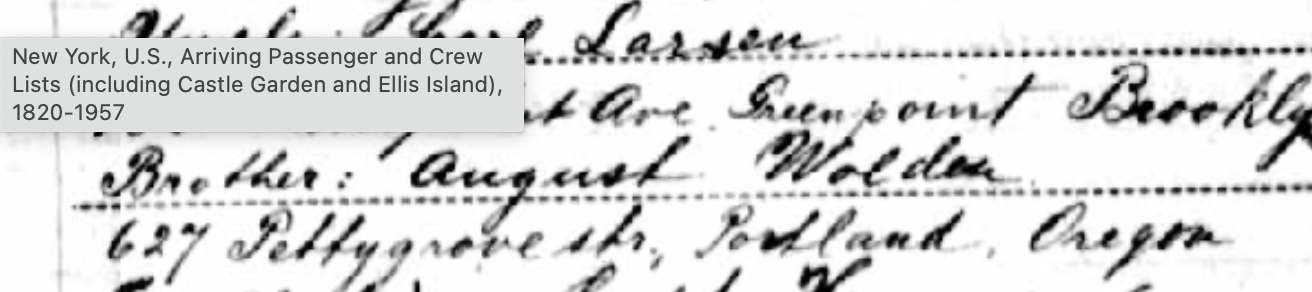 Larsen
New York, U.S., Arriving Passenger and Crew
Lists (including Castle Garden and Ellis Island),
1820-1957
Ave. Greenpoint Brookly
Brother: August Wolden
627 Pettygrove str., Portland, Oregon